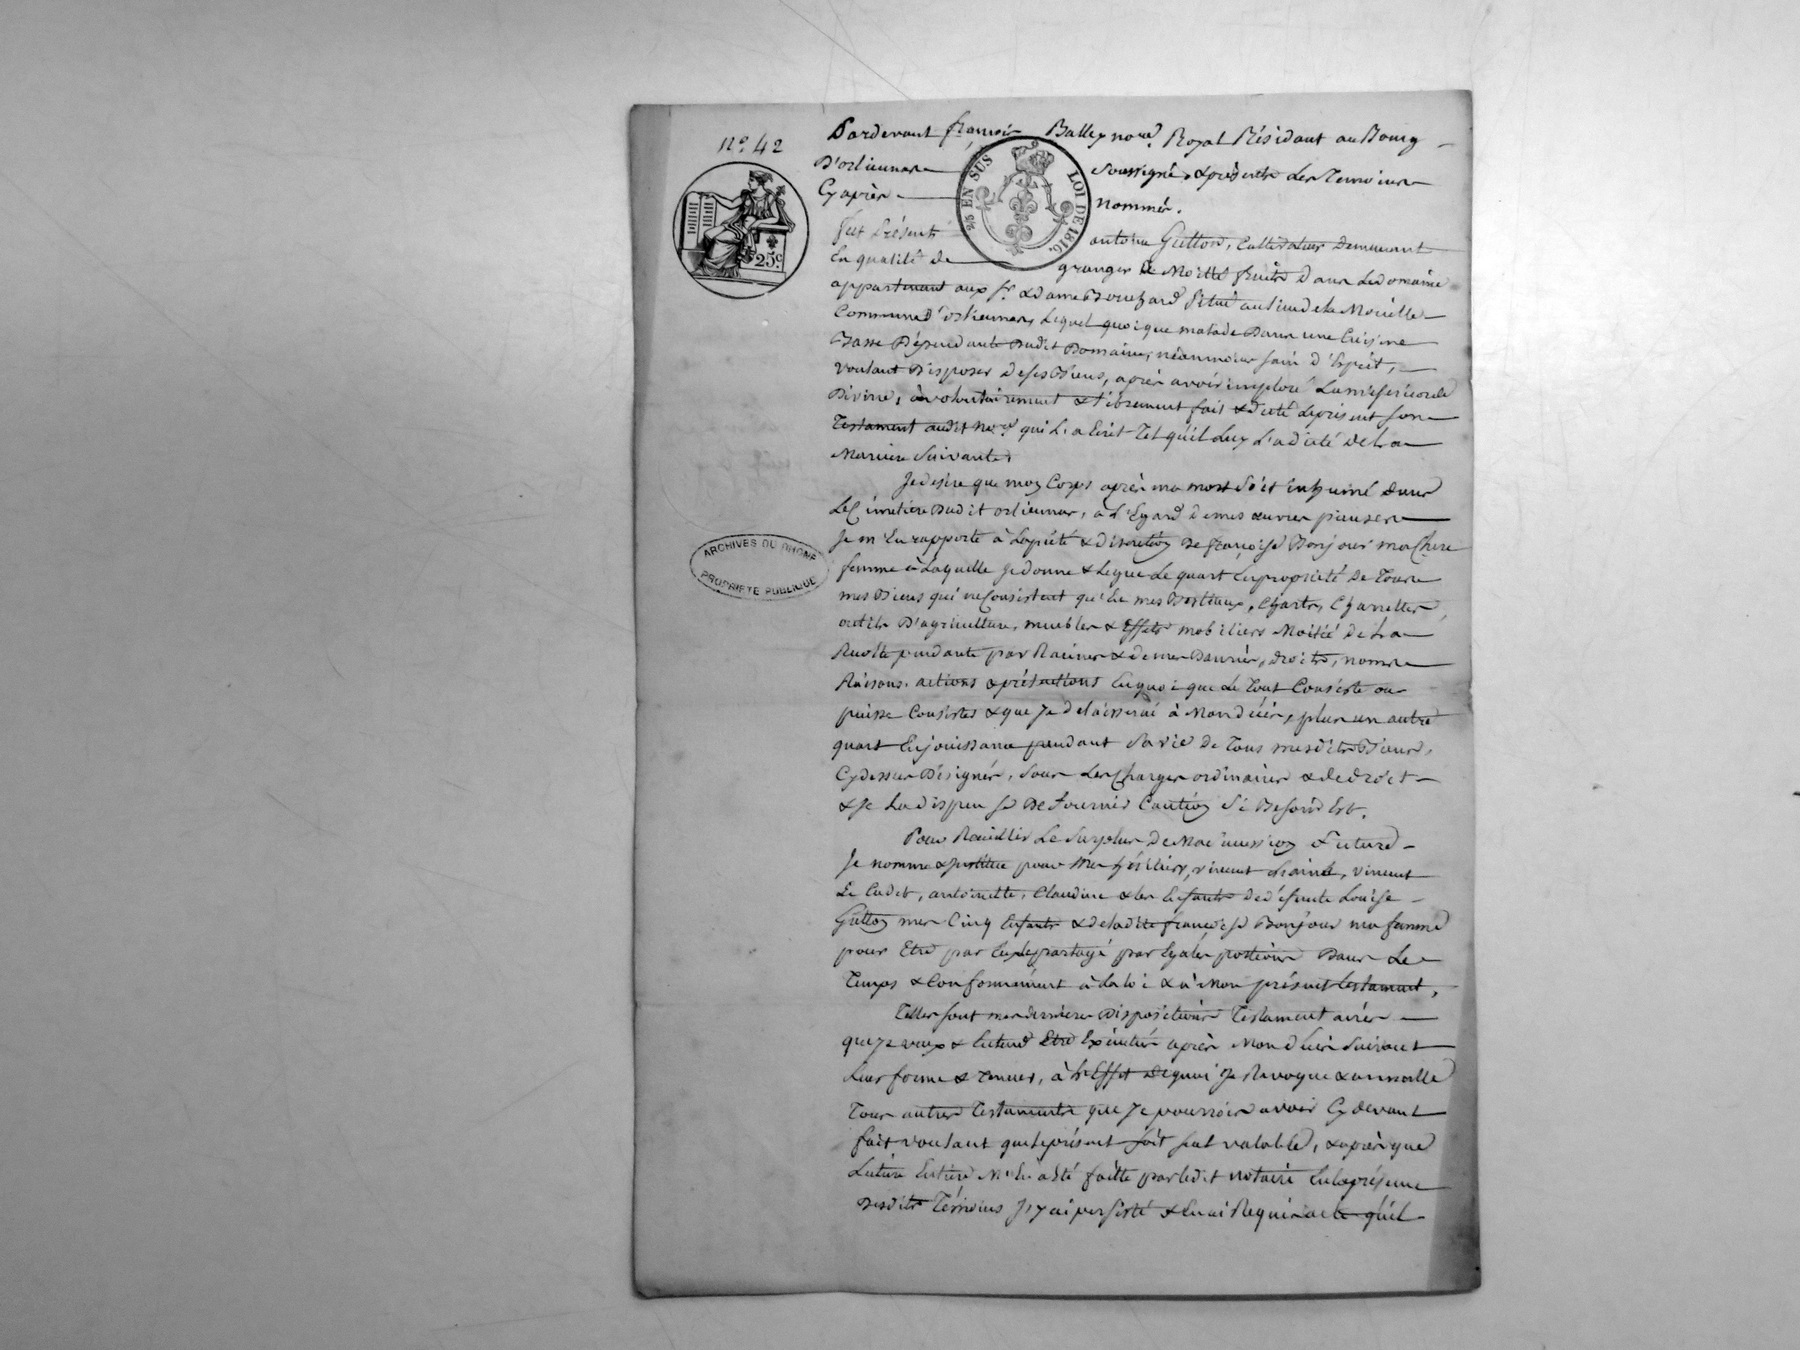 N.° 42
Pardevant françois Balley no.re Royal Résidant au Bourg
D'orlienas soussigné, & présents les Temoins
Cyaprès nommés.
25 EN SUS LOI DE 1816.
25 c
fut Présent antoine Gutton, Cultivateur demeurant
En qualité de granger à Moitié fruits dans le domaine
appartenant aux Sr. & dame Bouchard situé au lieu de la Mouille
Commune d'orlienas, Lequel quoique malade dans une Cuisine
Basse Dépendante dudit Domaine, néanmoins sain d'Esprit,
voulant Disposer de ses Biens, après avoir imploré La misericorde
Divine, à volontairement & librement fait & dicté le présent son
Testament audit no.re qui L'a Ecrit Tel qu'il Luy L'a dicté de La
Maniere Suivante,
Je desire que moy Corps après ma mort soit inhumé dans
Le Cimetiere dudit orlienas, à L'Egard de mes œuvres pieuses
Je m'En rapporte à La piété & discretion de françoise Bonjour ma Chere
femme à Laquelle je donne & Legue Le quart En propriété de Tous
mes Biens qui ne Consistent qu'En mes Bestiaux, Chars, Charettes,
outils D'agriculture, meubles & Effets mobiliers Moitié de La
Recolte pendante par Racines & de mes Denrées, droits, noms
Raisons, actions & prétentions En quoi que Le Tout Consiste ou
puisse Consister & que Je delaisserai à Mon décès, plus un autre
quart En jouissance pendant sa vie de Tous mesdits Biens,
Cydessus Désignés, sous Les Charges ordinaires & de droit
& Je La dispense de fournir Caution si Besoin Est.
Pour Recueillir Le Surplus de Ma succession future
Je nomme & Institue pour Mes héritiers, vincent L'ainé, vincent
Le Cadet, antoinette, Claudine & les Enfants de défunte Louise
Guttoy mes Cinq Enfants & de ladite françoise Bonjour ma femme
pour Etre par Eux partagé par Egales portions Dans Le
Temps & Conformément à La loi & à Mon présent testament,
Telles sont mes dernieres Dispositions Testamentaires
que Je veux & Entend Etre Exécutés après Mon décès suivant
Leur forme & teneur, à L'Effet de quoi Je Révoque & annulle
Tous autres Testaments que Je pourrois avoir Cy devant
fait voulant que le présent soit seul valable, & après que
Lecture Entiere M'En à Eté faitte par ledit notaire En la présence
Desdits Témoins J'y ai persisté & En ai Requis acte qu'il
ARCHIVES DU RHONE
PROPRIETE PUBLIQUE